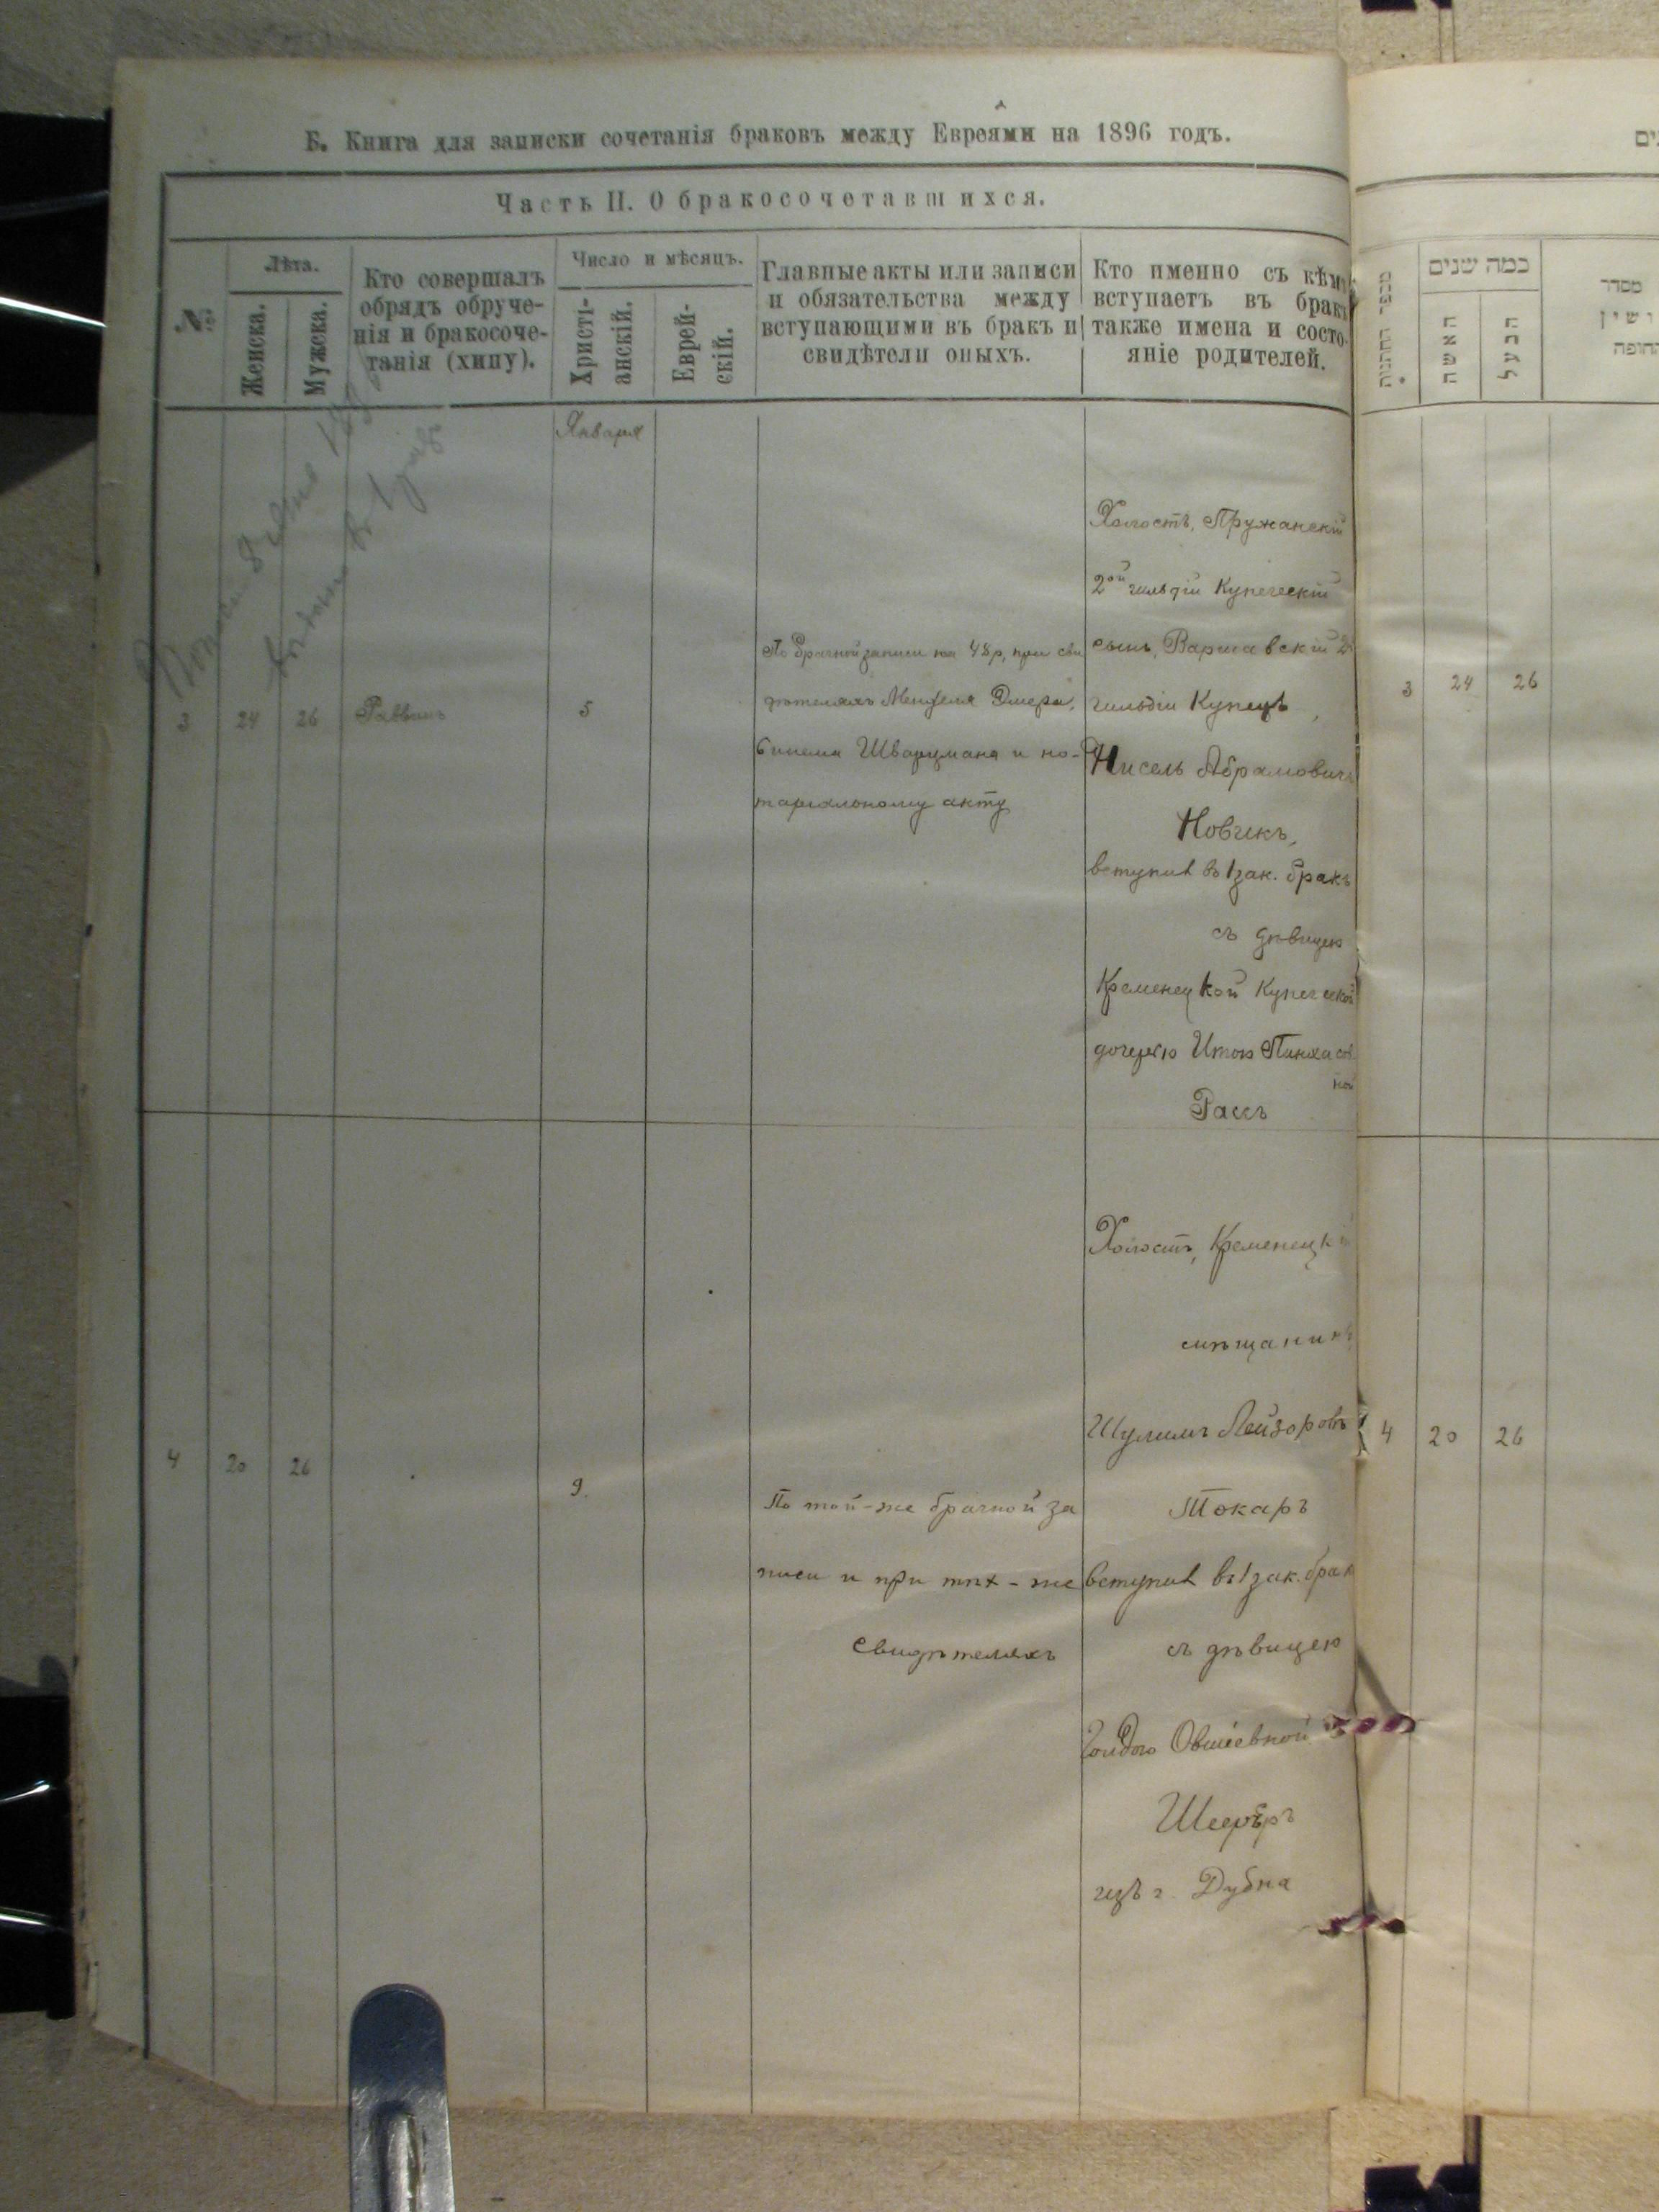 Б. Книга для записки сочетанія браковъ между Евреями на 1896 годъ.
Часть II. О бракосочетавшихся.
№
Лѣта.
Женска.
Мужска.
Кто совершалъ
обрядъ обруче-
нія и бракосоче-
танія (хипу).
Число и мѣсяцъ.
Христі-
анскій.
Еврей-
скій.
Главные акты или записи
и обязательства между
вступающими въ бракъ и
свидѣтели оныхъ.
Кто именно съ кѣмъ
вступаетъ въ бракъ
также имена и состо-
яніе родителей.
Января
3
24
26
Раввинъ
5
По брачной записи на 48 р, при сви
дѣтеляхъ
Шварцмана и но-
таріальному акту
Холостъ, Пружанскій
2ой гильдіи Купеческій
сынъ, Варшавскій 2й
гильдіи Купецъ,
Нисель Абрамовичъ
Новикъ,
вступил въ 1 зак. бракъ
съ дѣвицею
Кременецкой Купеческой
дочерью Итою Пинхасов
ной
Рассъ
4
20
26
9.
По той-же брачной за
писи и при тѣх-же
свидѣтеляхъ
Холостъ, Кременецкій
мѣщанинъ,
Шулимъ Лейзоровъ
Токаръ
вступил въ 1 зак. брак
съ дѣвицею
Голдою Овшіевной
изъ г. Дубна
כמה שנים
האשה
הבעל
מסדר
3
24
26
4
20
26